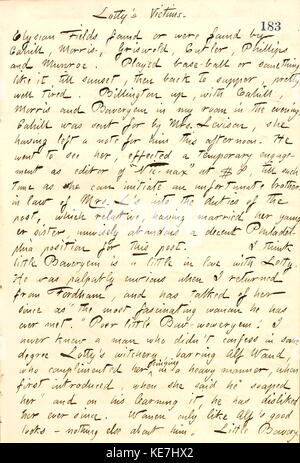 Lotty's Victims.
183
Elysian Fields found or were found by
Cahill, Morris, Griswold, Cutler, Phillips
and Munroe. Played base-ball or something
like it, till sunset, then back to supper, pretty
well tired. Billington up, with Cahill,
Morris and Boweryem in my room in the evening
Cahill was sent for by Mrs. Levison, she
having left a note for him this afternoon. He
went to see her, effected a temporary engage-
ment as editor of "Nic-nax" at $ , till such
time as she can initiate an unfortunate brother
in law of Mrs. L's into the duties of the
post, which relative, having married her young
er sister, unwisely abandons a decent Philadel
phia position for this post. I think
little Boweryem is a little in love with Lotty.
He was palpably envious when I returned
from Fordham, and has talked of her
since as "the most fascinating woman he has
ever met." Poor little Bow-woweryem! I
never knew a man who didn't confess in some
degree Lotty's witchery, barring Alf Waud,
who complimented her, joining in a heavy manner, when
first introduced, when she said he "soaped
her" and on his learning it, he has disliked
her ever since. Women only like Alf's good
looks - nothing else about him. Little Bowery